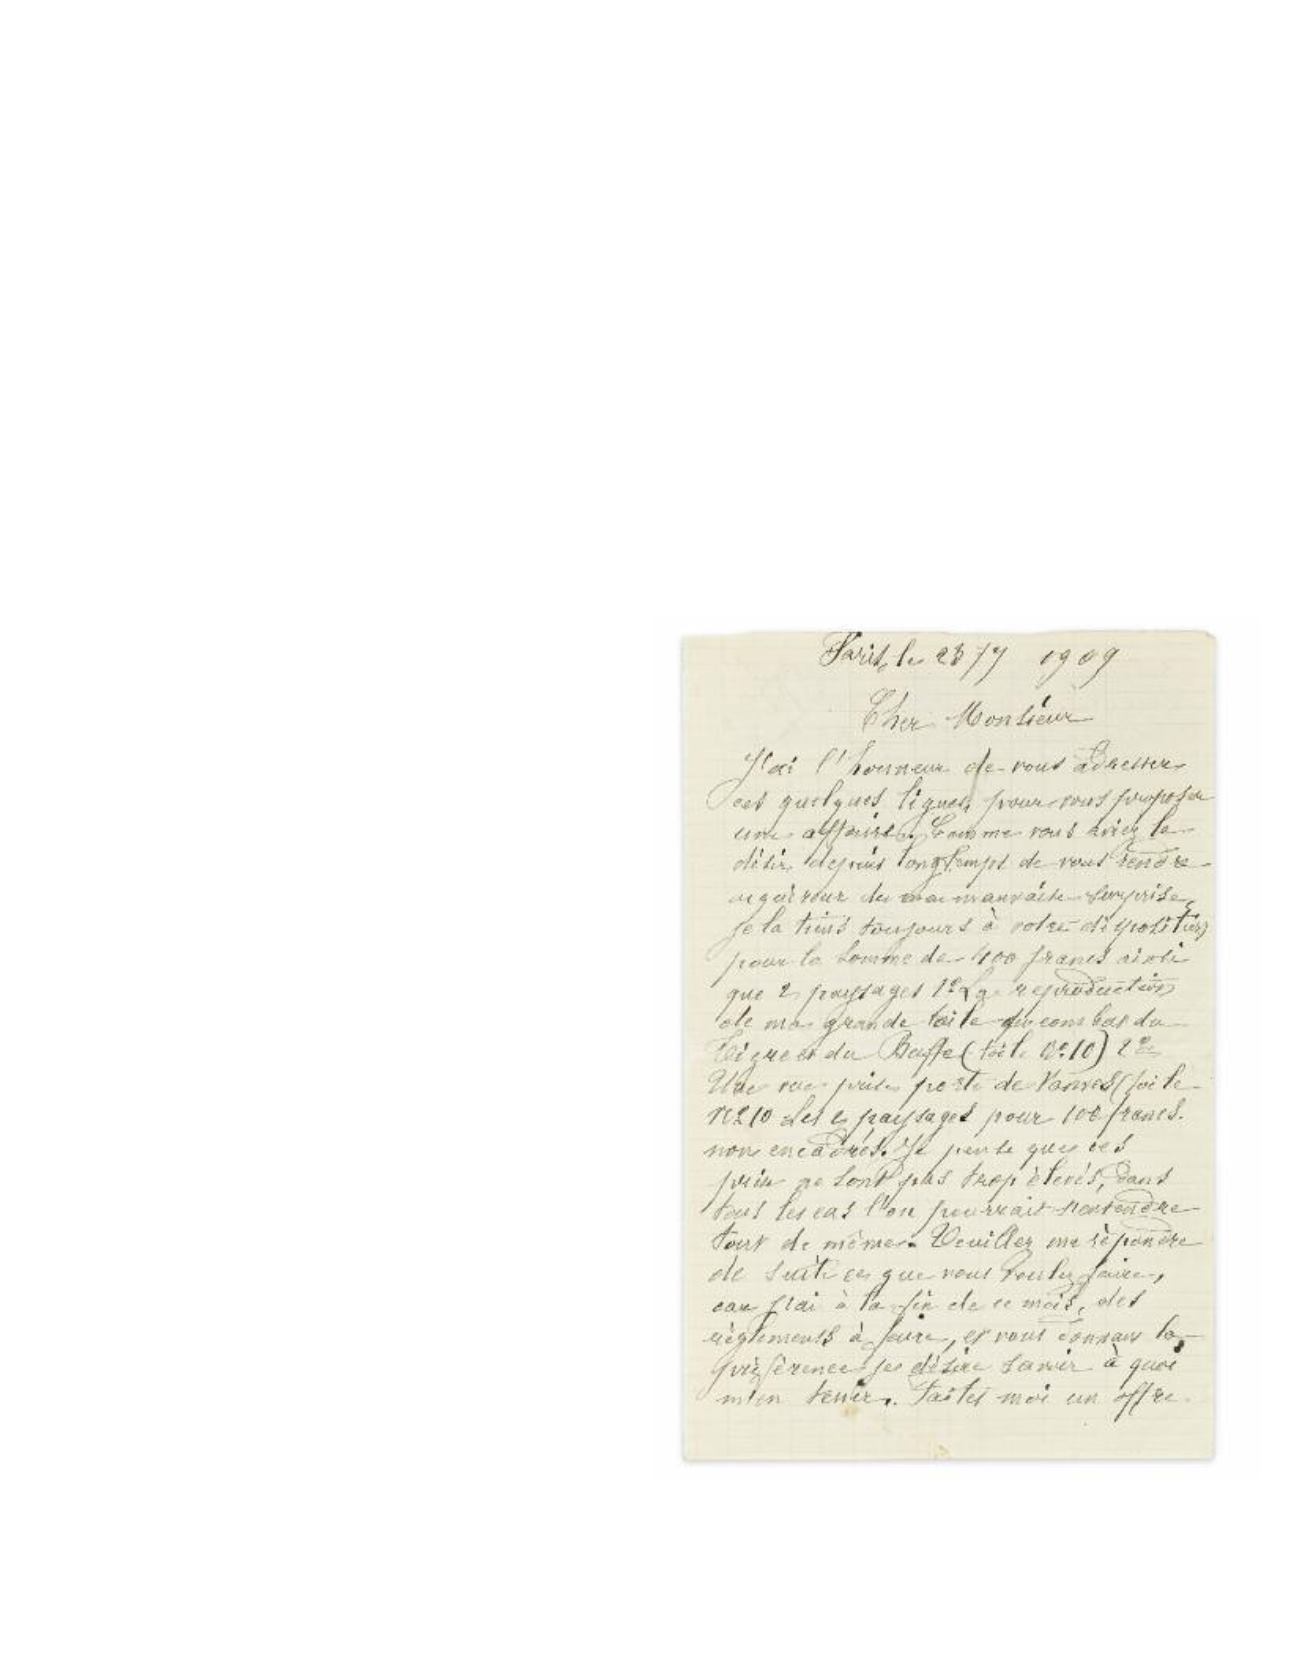 Paris, le 23/7 1909
Cher Monsieur
J'ai l'honneur de vous adresser
ces quelques lignes, pour vous proposer
une affaire. Comme vous aviez le
désir depuis longtemps de vous rendre
aquéreur de ma mauvaise surprise,
je la tiens toujours à votre disposition
pour la somme de 400 francs ainsi
que 2 paysages 1º La reproduction
de ma grande toile du combat du
Tigre et du Buffle (toile Nº 10) 2º
Une vue prise porte de Vanves (toile
Nº 10 les 2 paysages pour 100 francs.
non encadrés. Je pense que ces
prix ne sont pas trop élevés, dans
tous les cas l'on pourrait s'entendre
tout de même. Veuillez me répondre
de suite ce que vous voulez faire,
car j'ai à la fin de ce mois, des
règlements à faire, et vous donnant la
préférence je désire savoir à quoi
m'en tenir. Faites moi un offre